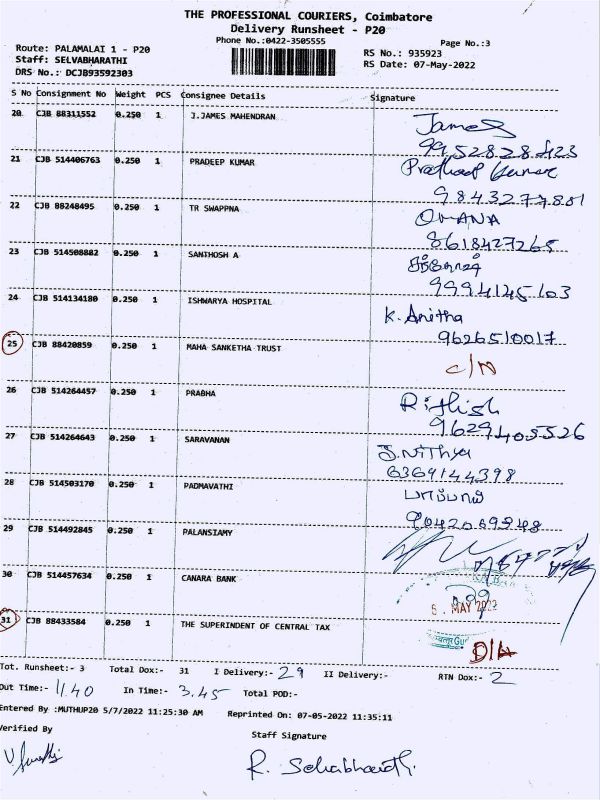 THE PROFESSIONAL COURIERS, Coimbatore
Delivery Runsheet - P20
Phone No.:0422-3505555
Page No.:3
Route: PALAMALAI 1 - P20
RS No.: 935923
Staff: SELVABHARATHI
RS Date: 07-May-2022
DRS No.: DCJB93592303
S No Consignment No Weight PCS Consignee Details Signature
20 CJB 88311552 0.250 1 J.JAMES MAHENDRAN James
9952828423
21 CJB 514406763 0.250 1 PRADEEP KUMAR Kumar
9843277801
22 CJB 88248495 0.250 1 TR SWAPPNA OMANA
8618427265
23 CJB 514508882 0.250 1 SANTHOSH A
9994145103
24 CJB 514134180 0.250 1 ISHWARYA HOSPITAL K. Anitha
9626510017
25 CJB 88420859 0.250 1 MAHA SANKETHA TRUST C/N
26 CJB 514264457 0.250 1 PRABHA Rithish
9629405526
27 CJB 514264643 0.250 1 SARAVANAN S.Nithya
6369144398
28 CJB 514503170 0.250 1 PADMAVATHI பாப்பாள்
9042069948
29 CJB 514492845 0.250 1 PALANSIAMY
30 CJB 514457634 0.250 1 CANARA BANK
MAY 2022
31 CJB 88433584 0.250 1 THE SUPERINDENT OF CENTRAL TAX D/L
Tot. Runsheet:- 3 Total Dox:- 31 I Delivery:- 29 II Delivery:- RTN Dox:- 2
Out Time:- 11.40 In Time:- 3.45 Total POD:-
Entered By :MUTHUP20 5/7/2022 11:25:30 AM Reprinted On: 07-05-2022 11:35:11
Verified By Staff Signature
R. Selvabharathi